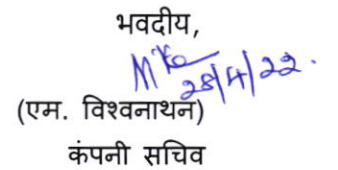 भवदीय,
28/4/22.
(एम. विश्वनाथन)
कंपनी सचिव